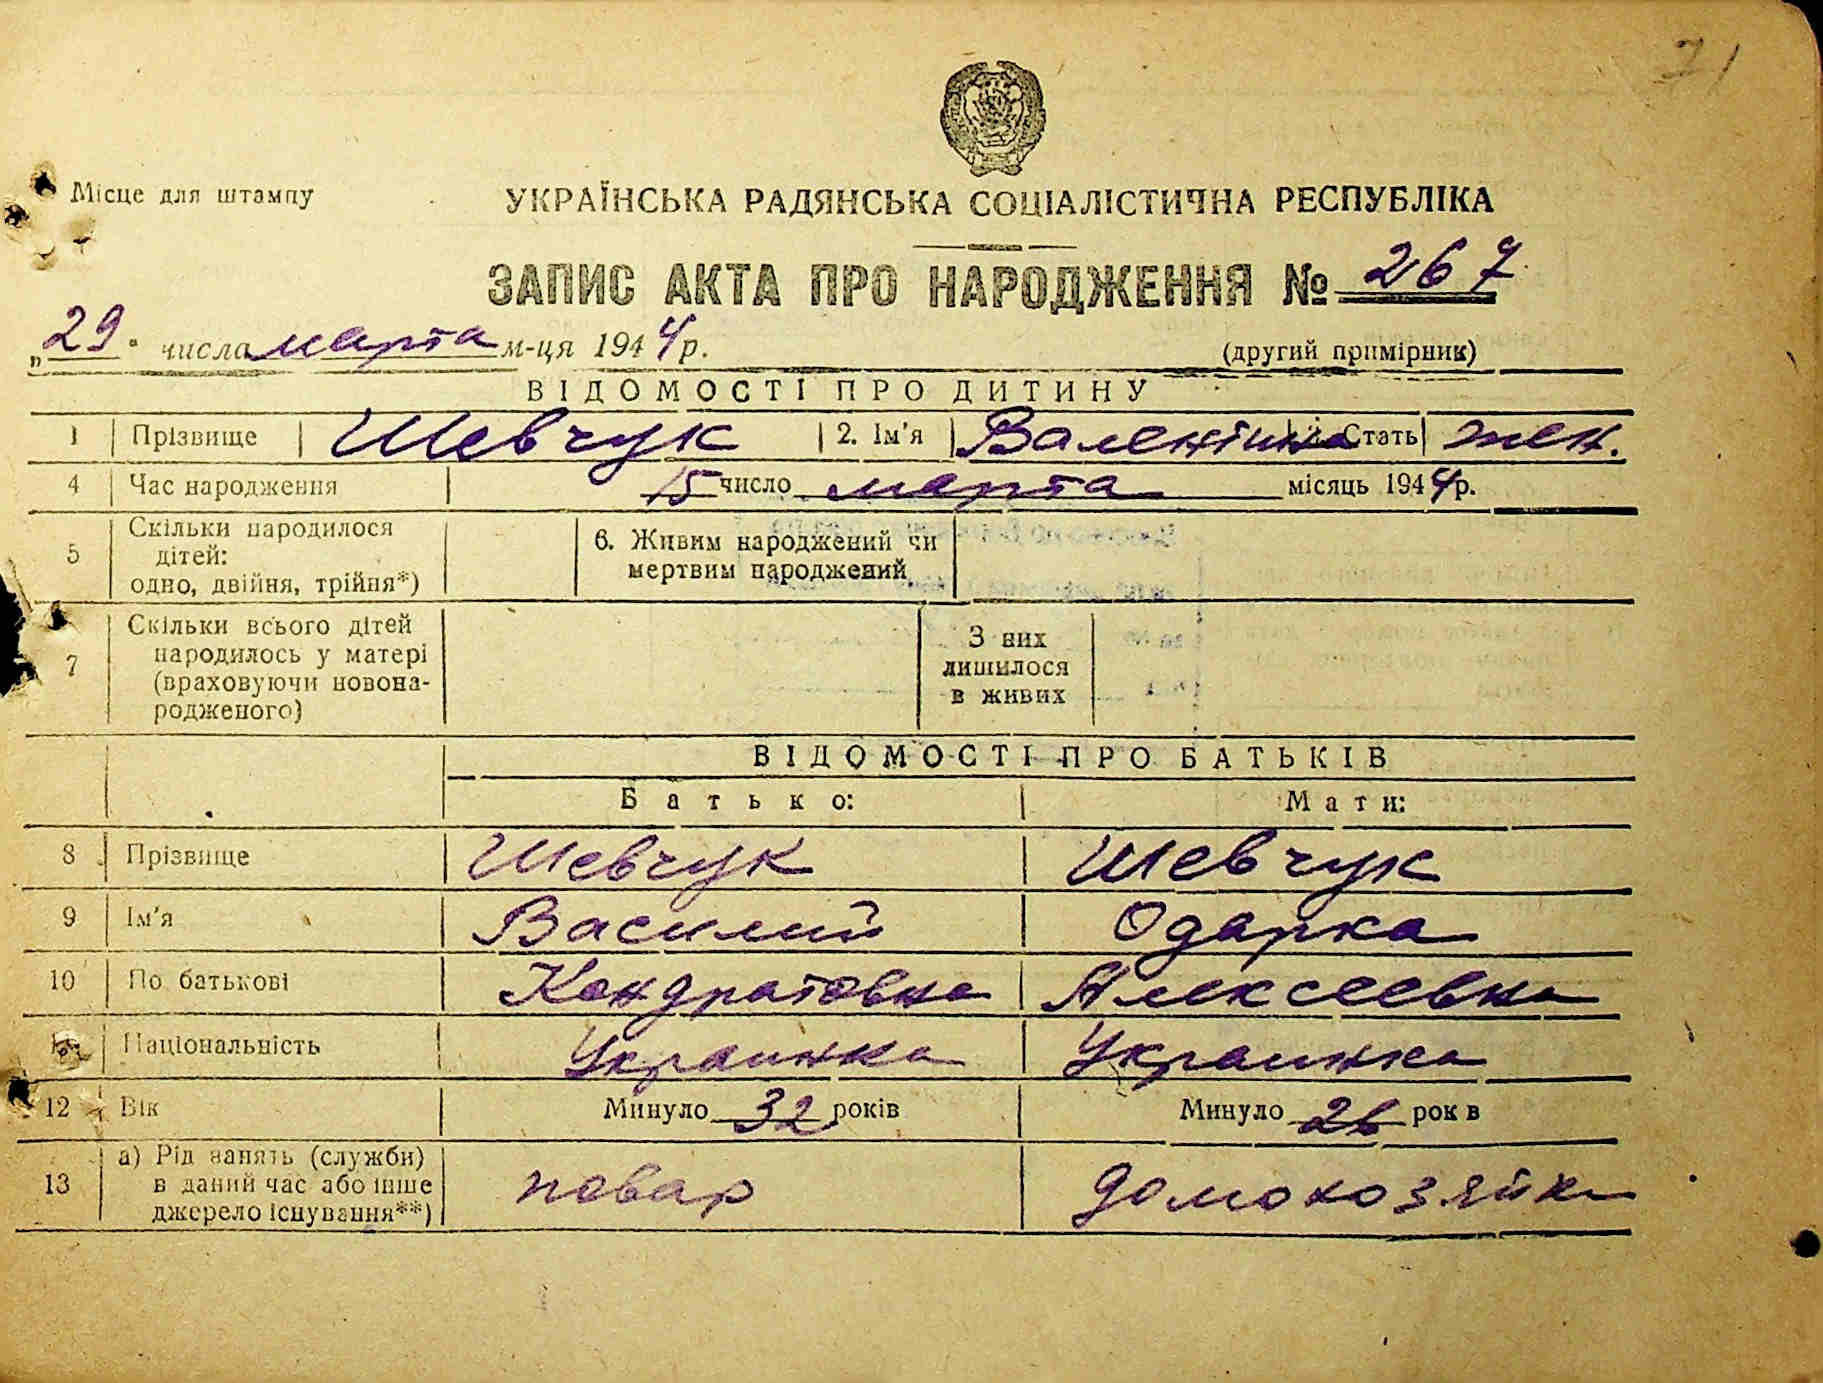 71
Місце для штампу
УКРАЇНСЬКА РАДЯНСЬКА СОЦІАЛІСТИЧНА РЕСПУБЛІКА
ЗАПИС АКТА ПРО НАРОДЖЕННЯ № 267
„29" числа марта м-ця 1944 р.
(другий примірник)
ВІДОМОСТІ ПРО ДИТИНУ
1 Прізвище Шевчук 2. Ім'я Валентина 3. Стать жен.
4 Час народження 15 число марта місяць 1944 р.
5 Скільки народилося дітей: одно, двійня, трійня*) 6. Живим народжений чи мертвим народжений
7 Скільки всього дітей народилось у матері (враховуючи новонародженого) З них лишилося в живих
ВІДОМОСТІ ПРО БАТЬКІВ
Батько: Мати:
8 Прізвище Шевчук Шевчук
9 Ім'я Василий Одарка
10 По батькові Кондратовна Алексеевна
11 Національність Украинка Украинка
12 Вік Минуло 32 років Минуло 26 рок в
13 а) Рід занять (служби) в даний час або інше джерело існування**) повар домохозяйка